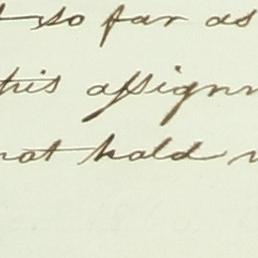 so far as
this assign
not hold